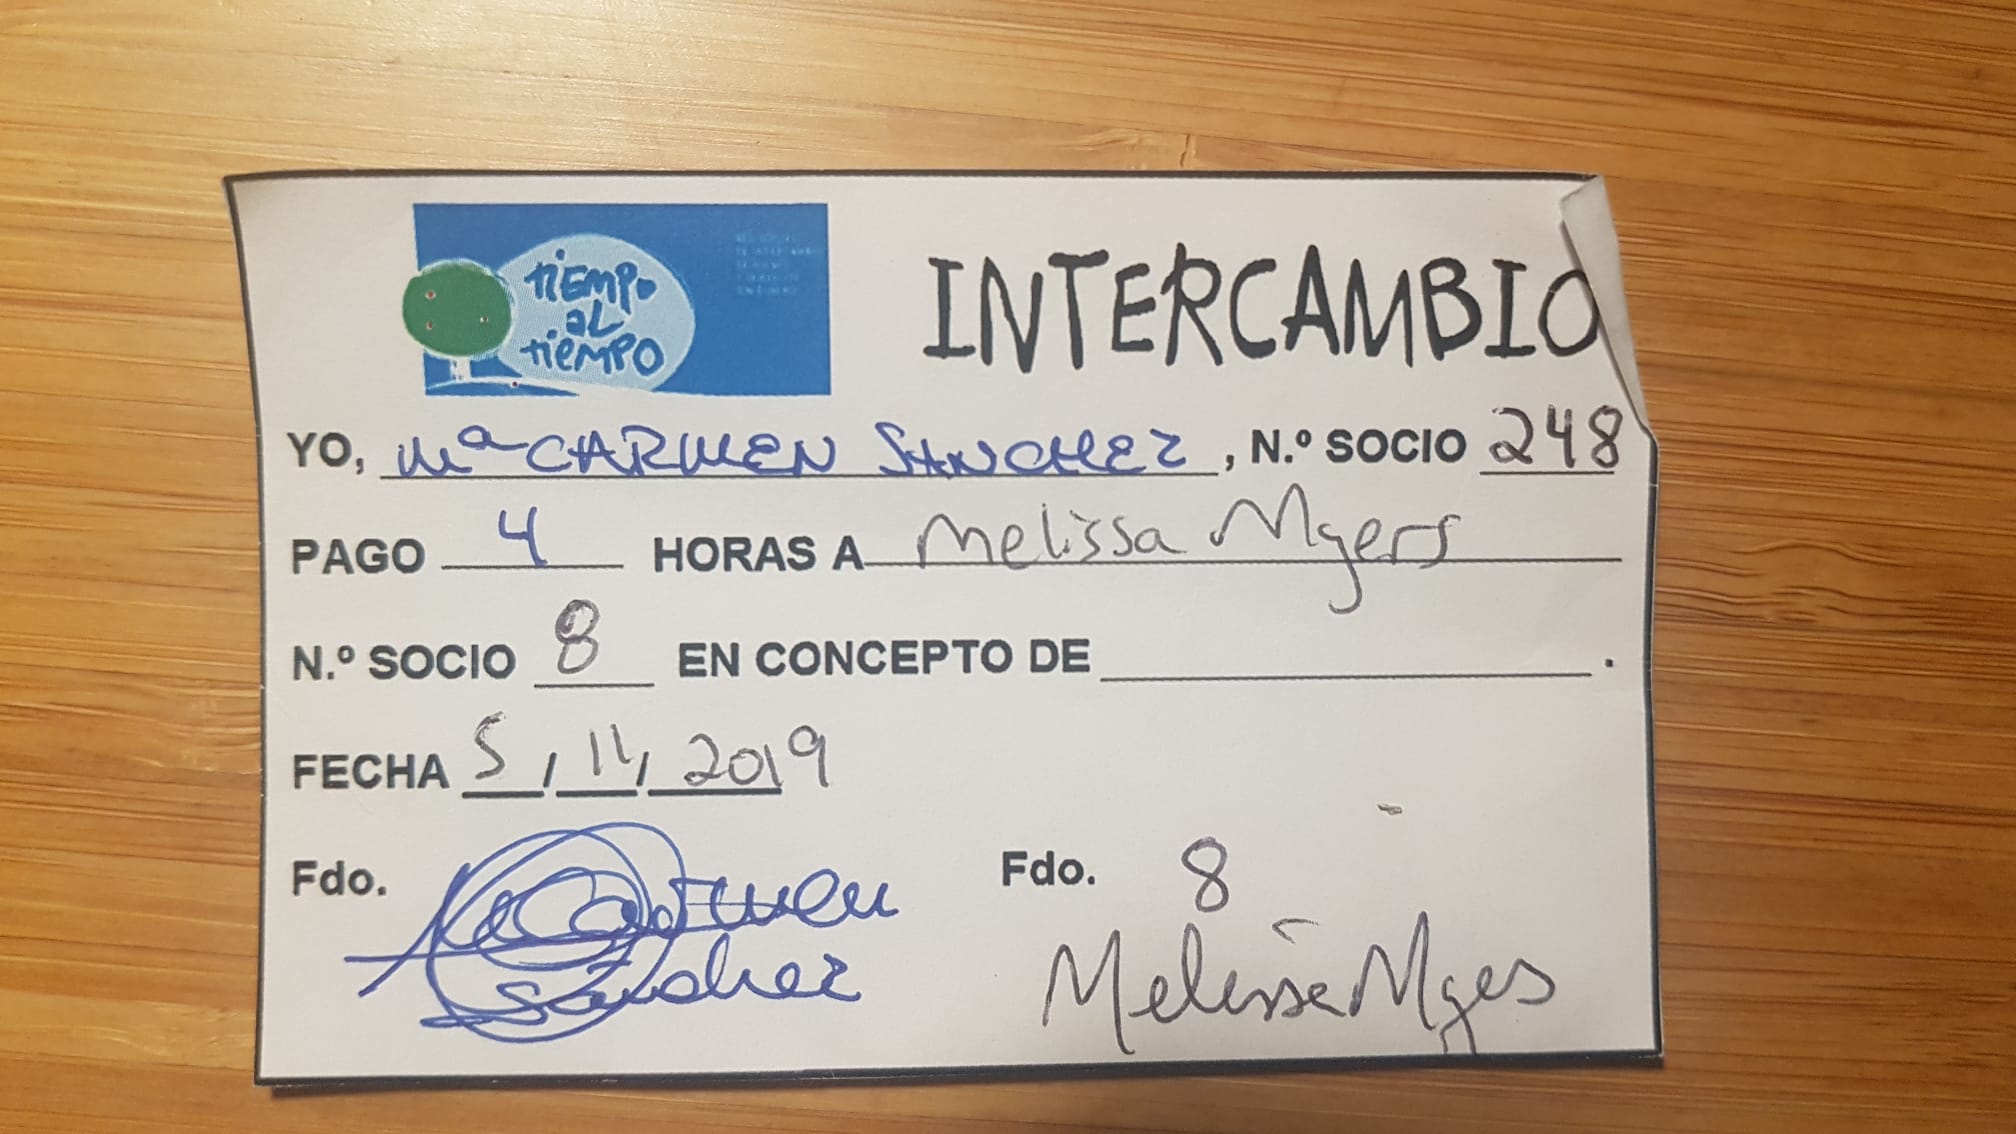 tiempo
al
tiempo
INTERCAMBIO
YO, Mª CARMEN SANCHEZ, N.º SOCIO 248
PAGO 4 HORAS A Melissa Myers
N.º SOCIO 8 EN CONCEPTO DE .
FECHA 5 / 11 / 2019
Fdo. Mª Carmen Fdo. 8
Sánchez Melissa Myers